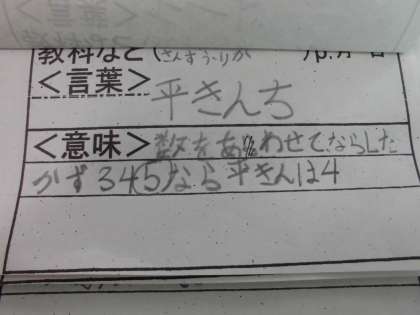 教科など(さんすう・りか
<言葉>平きんち
<意味>数をあわせて、ならした
かず345なら平きんは4